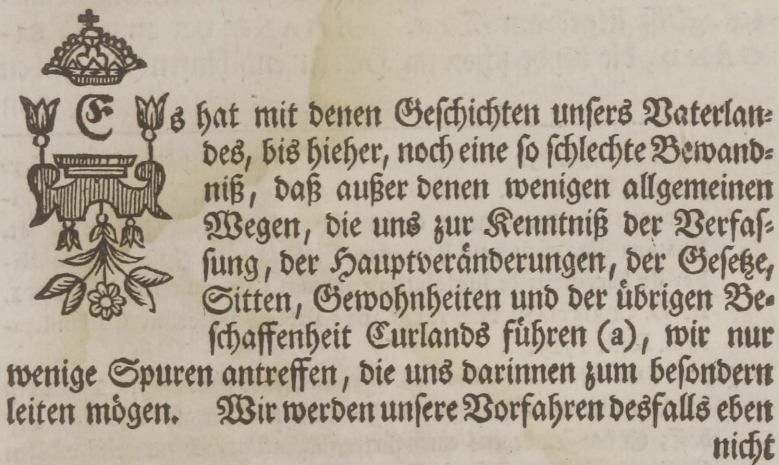 Es hat mit denen Geschichten unsers Vaterlan-
des, bis hieher, noch eine so schlechte Bewand-
niß, daß außer denen wenigen allgemeinen
Wegen, die uns zur Kenntniß der Verfas-
sung, der Hauptveränderungen, der Gesetze,
Sitten, Gewohnheiten und der übrigen Be-
schaffenheit Curlands führen (a), wir nur
wenige Spuren antreffen, die uns darinnen zum besondern
leiten mögen. Wir werden unsere Vorfahren desfalls eben
nicht